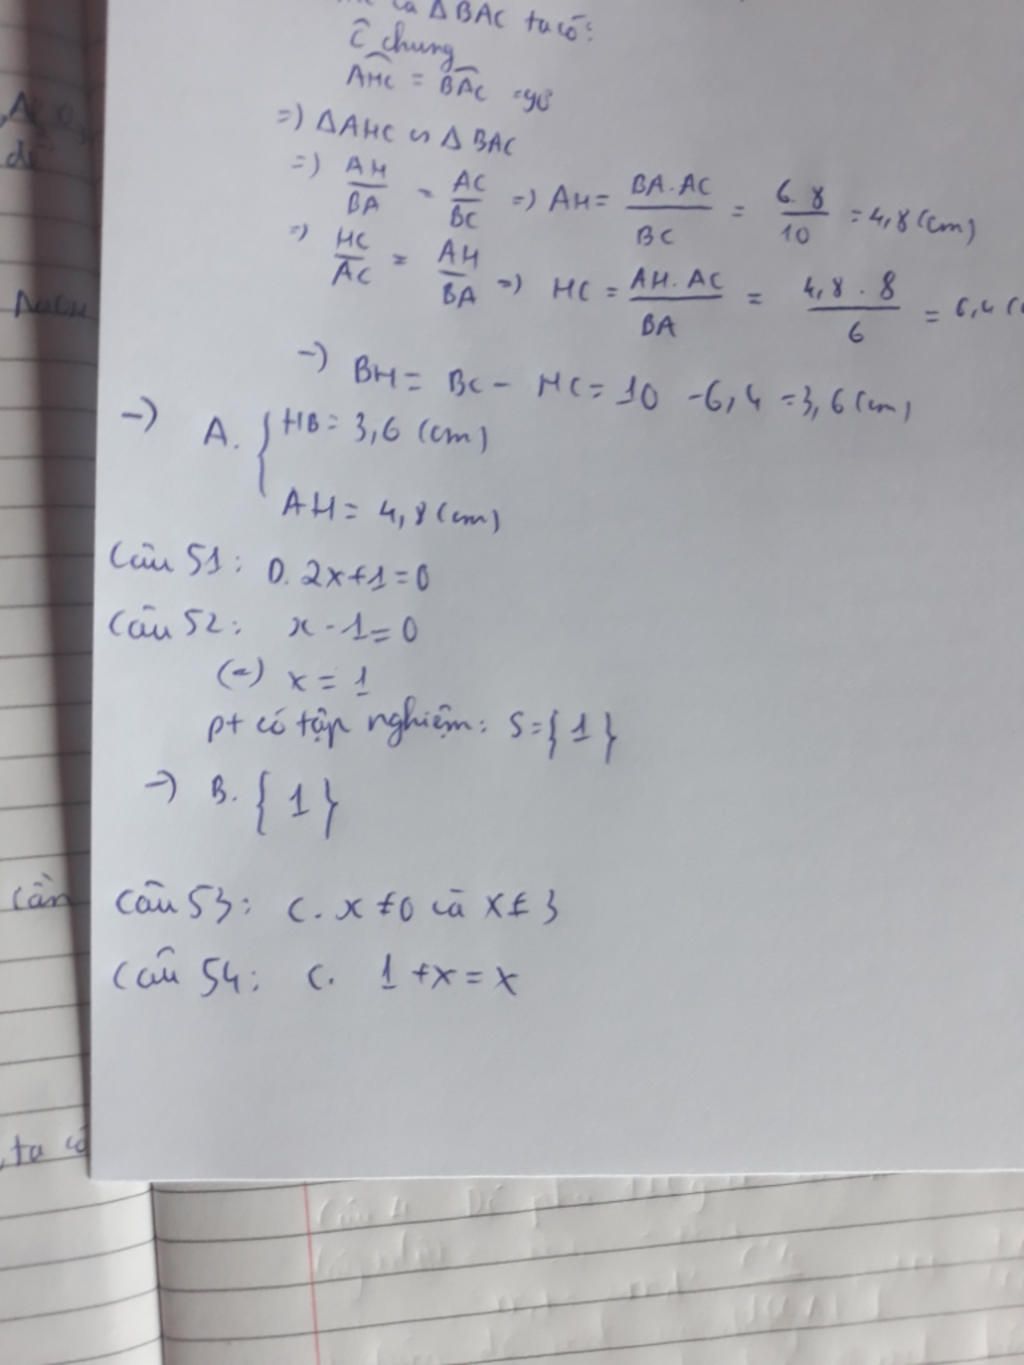 ΔBAC ta có:
Ĉ chung
AHC = BAC = 90
=) ΔAHC ∽ ΔBAC
=) AH/BA = AC/BC =) AH = BA.AC/BC = 6.8/10 = 4,8 (cm)
=) HC/AC = AH/BA =) HC = AH.AC/BA = 4,8.8/6 = 6,4
=) BH = BC - HC = 10 - 6,4 = 3,6 (cm)
=) A. { HB = 3,6 (cm)
AH = 4,8 (cm)
Câu 51: D. 2x+1=0
Câu 52: x-1=0
(=) x = 1
pt có tập nghiệm: S={1}
=) B. {1}
Câu 53: C. x≠0 và x≠3
Câu 54: C. 1+x=x
cần
ta có